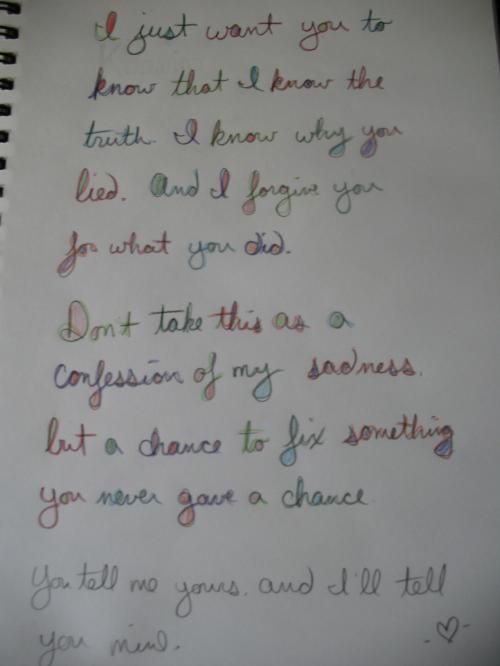 I just want you to
know that I know the
truth. I know why you
lied. And I forgive you
for what you did.
Don't take this as a
confession of my sadness.
but a chance to fix something
you never gave a chance.
You tell me yours. and I'll tell
you mine.